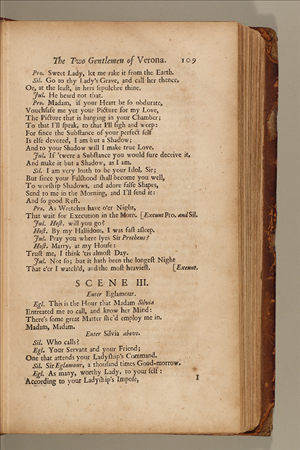 The Two Gentlemen of Verona. 109
Pro. Sweet Lady, let me rake it from the Earth.
Sil. Go to thy Lady's Grave, and call her thence,
Or, at the least, in hers sepulchre thine.
Jul. He heard not that.
Pro. Madam, if your Heart be so obdurate,
Vouchsafe me yet your Picture for my Love,
The Picture that is hanging in your Chamber;
To that I'll speak, to that I'll sigh and weep:
For since the Substance of your perfect self
Is else devoted, I am but a Shadow;
And to your Shadow will I make true Love.
Jul. If 'twere a Substance you would sure deceive it,
And make it but a Shadow, as I am.
Sil. I am very loth to be your Idol, Sir;
But since your Falshood shall become you well,
To worship Shadows, and adore false Shapes,
Send to me in the Morning, and I'll send it:
And so good Rest.
Pro. As Wretches have o'er Night,
That wait for Execution in the Morn. [Exeunt Pro. and Sil.
Jul. Host, will you go?
Host. By my Hallidom, I was fast asleep.
Jul. Pray you where lyes Sir Protheus?
Host. Marry, at my House:
Trust me, I think 'tis almost Day.
Jul. Not so; but it hath been the longest Night
That e'er I watch'd, and the most heaviest. [Exeunt.
SCENE III.
Enter Eglamour.
Egl. This is the Hour that Madam Silvia
Entreated me to call, and know her Mind:
There's some great Matter she'd employ me in.
Madam, Madam.
Enter Silvia above.
Sil. Who calls?
Egl. Your Servant and your Friend;
One that attends your Ladyship's Command.
Sil. Sir Eglamour, a thousand times Good-morrow.
Egl. As many, worthy Lady, to your self:
According to your Ladyship's Impose,
I